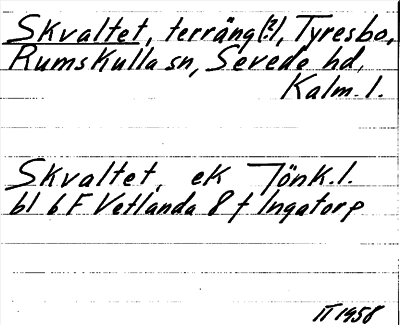 Skvaltet, terräng(?), Tyresbo,
Rumskulla sn, Sevede hd,
Kalm. l.
Skvaltet, ek Jönk. l.
bl 6 F Vetlanda 8 f Ingatorp
II 1958